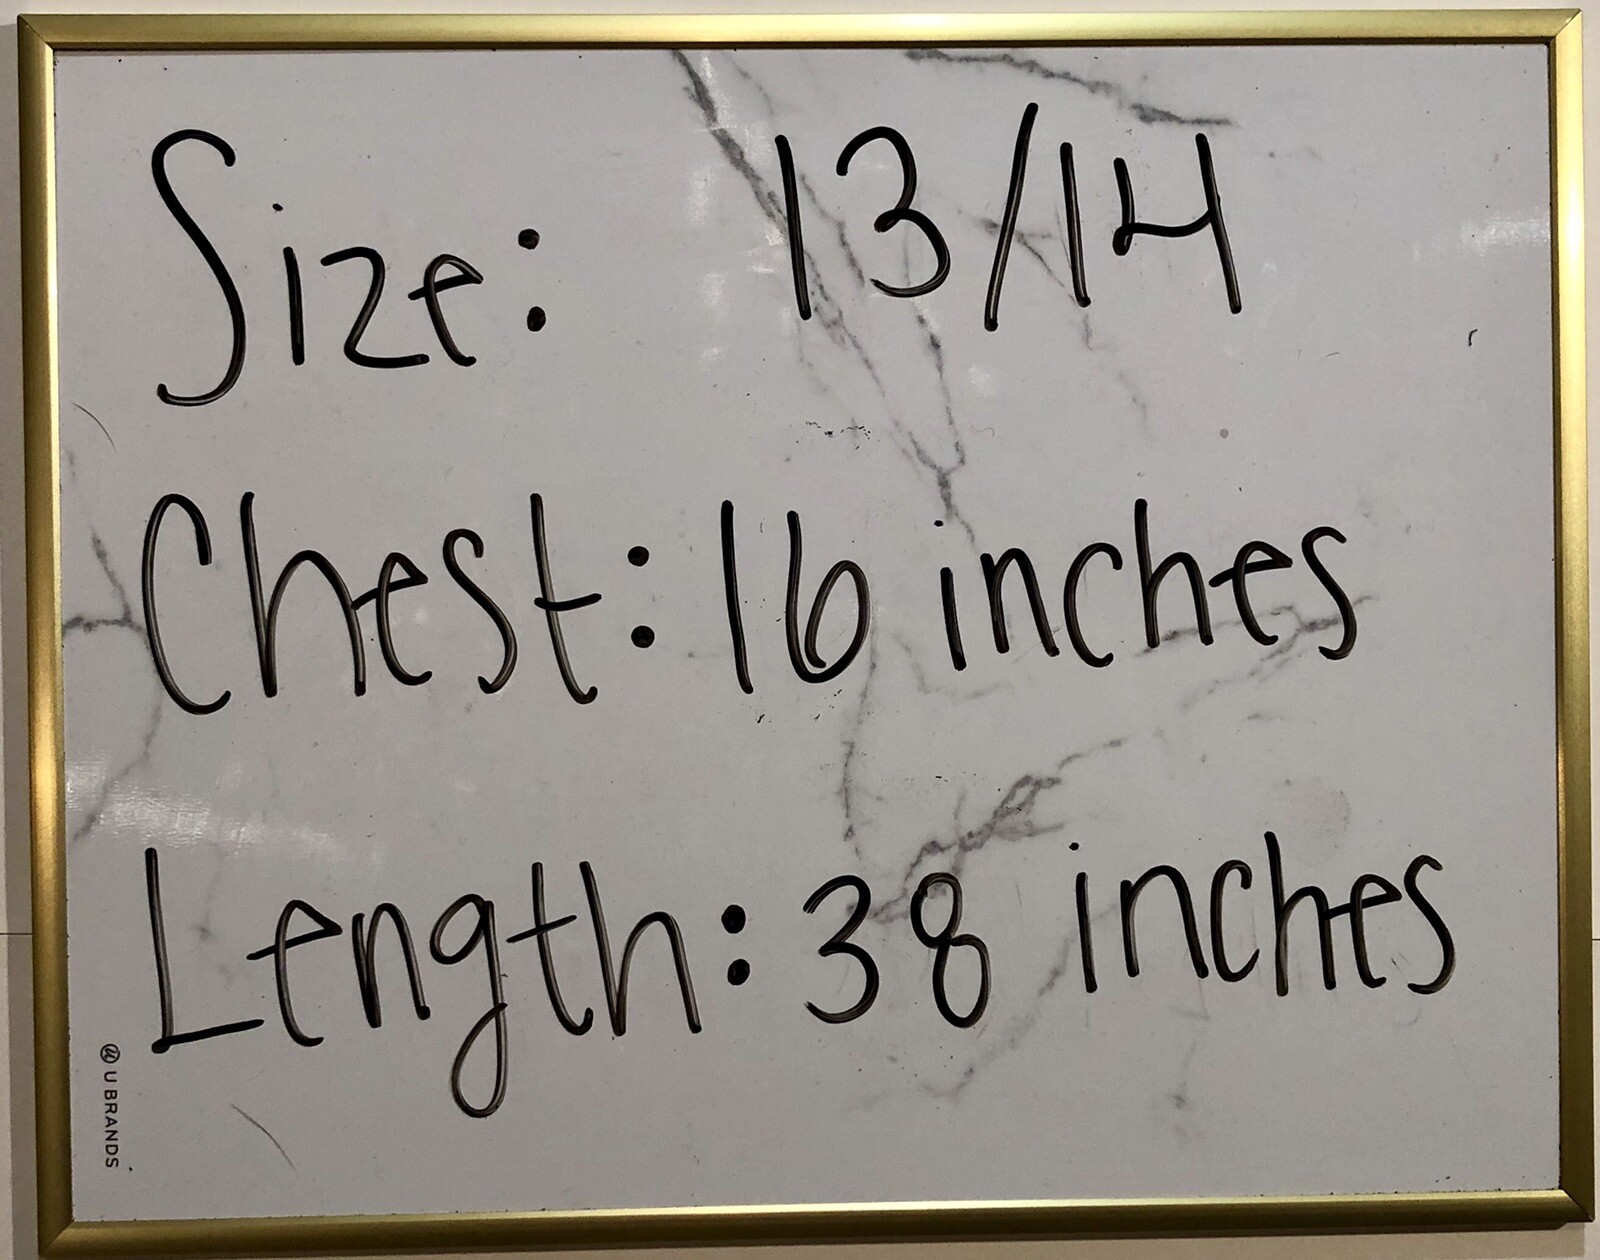 Size: 13/14
Chest: 16 inches
Length: 38 inches
U BRANDS